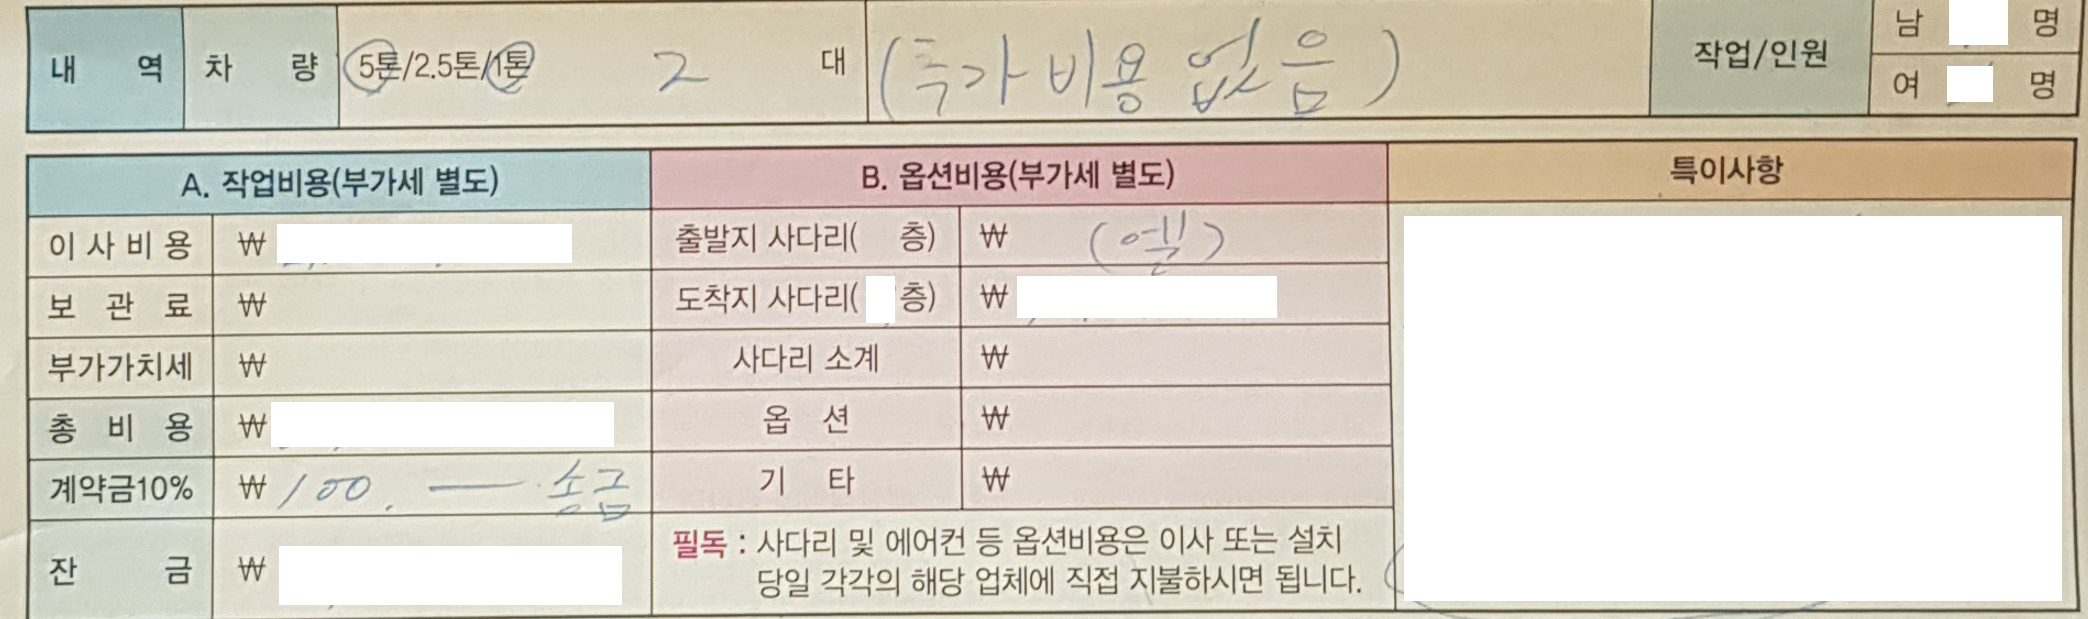 내 역 차 량 5톤/2.5톤/1톤 2 대 (추가비용 없음) 작업/인원 남 명
여 명
A. 작업비용(부가세 별도) B. 옵션비용(부가세 별도) 특이사항
이사비용 ₩ 출발지 사다리( 층) ₩ (엘)
보 관 료 ₩ 도착지 사다리( 층) ₩
부가가치세 ₩ 사다리 소계 ₩
총 비 용 ₩ 옵 션 ₩
계약금10% ₩ 100. — 송금 기 타 ₩
잔 금 ₩ 필독 : 사다리 및 에어컨 등 옵션비용은 이사 또는 설치
당일 각각의 해당 업체에 직접 지불하시면 됩니다.